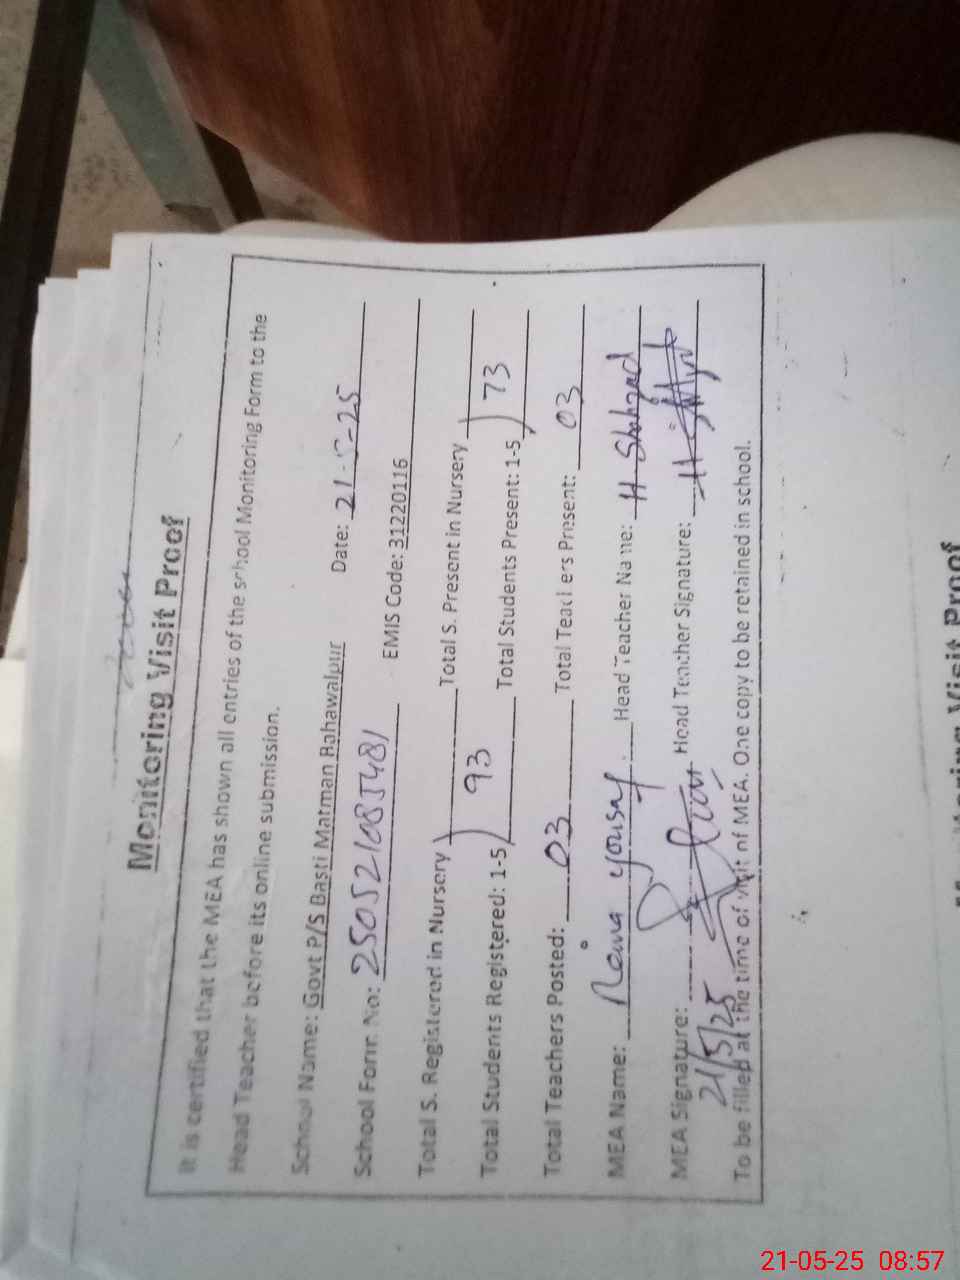 Monitoring Visit Proof
It is certified that the MEA has shown all entries of the school Monitoring Form to the
Head Teacher before its online submission.
School Name: Govt P/S Basti Matman Bahawalpur Date: 21-5-25
School Form No: EMIS Code: 31220116
Total S. Registered in Nursery Total S. Present in Nursery
Total Students Registered: 1-5 ) 93 Total Students Present: 1-5 ) 73
Total Teachers Posted: 03 Total Teachers Present: 03
MEA Name: yousaf Head Teacher Name: H Shahzad
MEA Signature: Head Teacher Signature:
21/5/25
To be filled at the time of visit of MEA. One copy to be retained in school.
Visit Proof
21-05-25 08:57